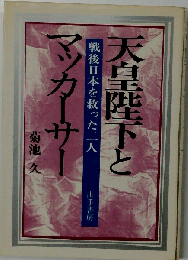 天皇陛下と
マッカーサー
戦後日本を救った二人
菊池 久
山手書房